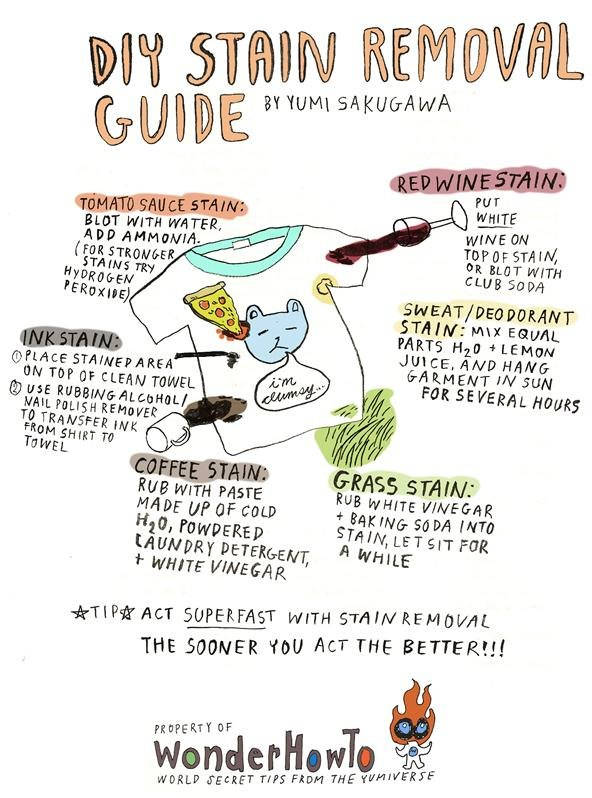 DIY STAIN REMOVAL
GUIDE BY YUMI SAKUGAWA
TOMATO SAUCE STAIN:
BLOT WITH WATER,
ADD AMMONIA.
(FOR STRONGER
STAINS TRY
HYDROGEN
PEROXIDE)
RED WINE STAIN:
PUT
WHITE
WINE ON
TOP OF STAIN,
OR BLOT WITH
CLUB SODA
INK STAIN:
① PLACE STAINED AREA
ON TOP OF CLEAN TOWEL
② USE RUBBING ALCOHOL/
NAIL POLISH REMOVER
TO TRANSFER INK
FROM SHIRT TO
TOWEL
SWEAT/DEODORANT
STAIN: MIX EQUAL
PARTS H2O + LEMON
JUICE, AND HANG
GARMENT IN SUN
FOR SEVERAL HOURS
i'm
clumsy...
COFFEE STAIN:
RUB WITH PASTE
MADE UP OF COLD
H2O, POWDERED
LAUNDRY DETERGENT,
+ WHITE VINEGAR
GRASS STAIN:
RUB WHITE VINEGAR
+ BAKING SODA INTO
STAIN, LET SIT FOR
A WHILE
☆TIP☆ ACT SUPERFAST WITH STAIN REMOVAL
THE SOONER YOU ACT THE BETTER!!!
PROPERTY OF
WonderHowTo
WORLD SECRET TIPS FROM THE YUMIVERSE